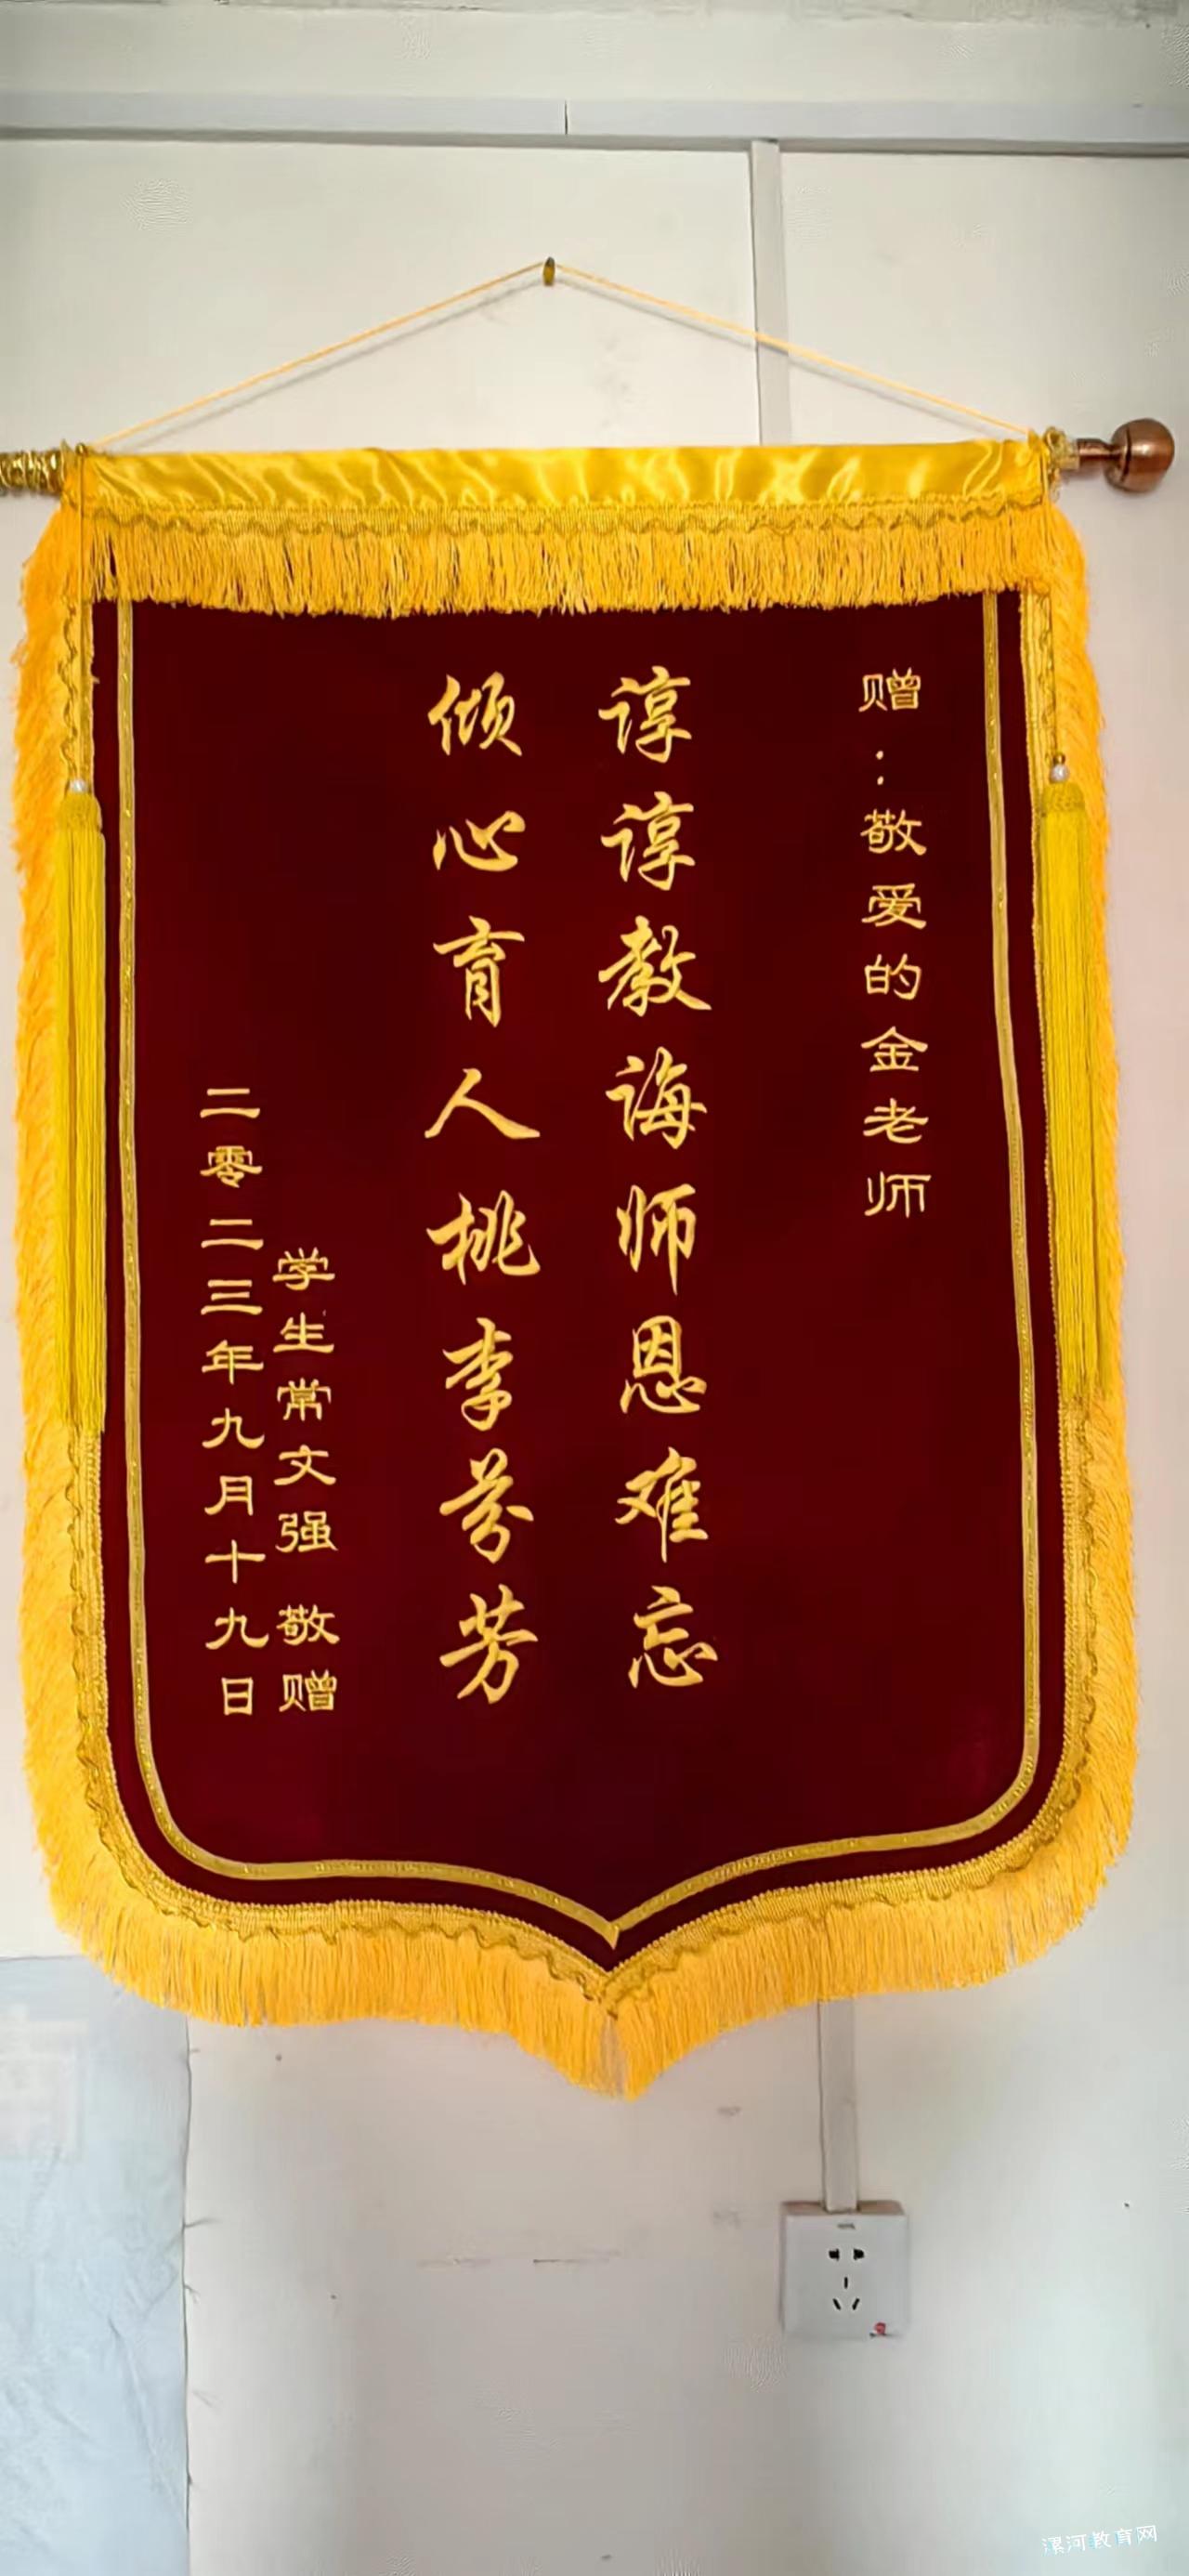 赠：敬爱的金老师
谆谆教诲师恩难忘
倾心育人桃李芬芳
学生常文强 敬赠
二零二三年九月十九日
漯河教育网